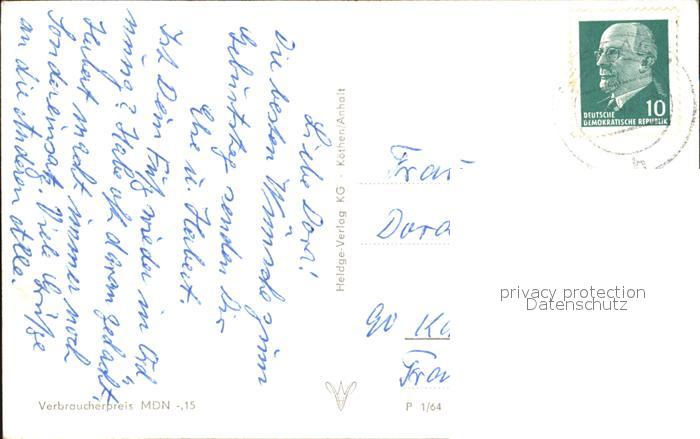 Liebe Dora!
Die besten Wünsche zum
Geburtstag senden Dir
u. Herbert.
Ist Dein Frig wieder in Ord
nung? Habe oft daran gedacht.
Herbert macht immer noch
Sondereinsatz. Viele Grüße
an die Anderen alle.
Heldge-Verlag KG · Köthen/Anhalt
Verbraucherpreis MDN -,15
P 1/64
DEUTSCHE
DEMOKRATISCHE REPUBLIK
10
Frau
Dora
90
privacy protection
Datenschutz